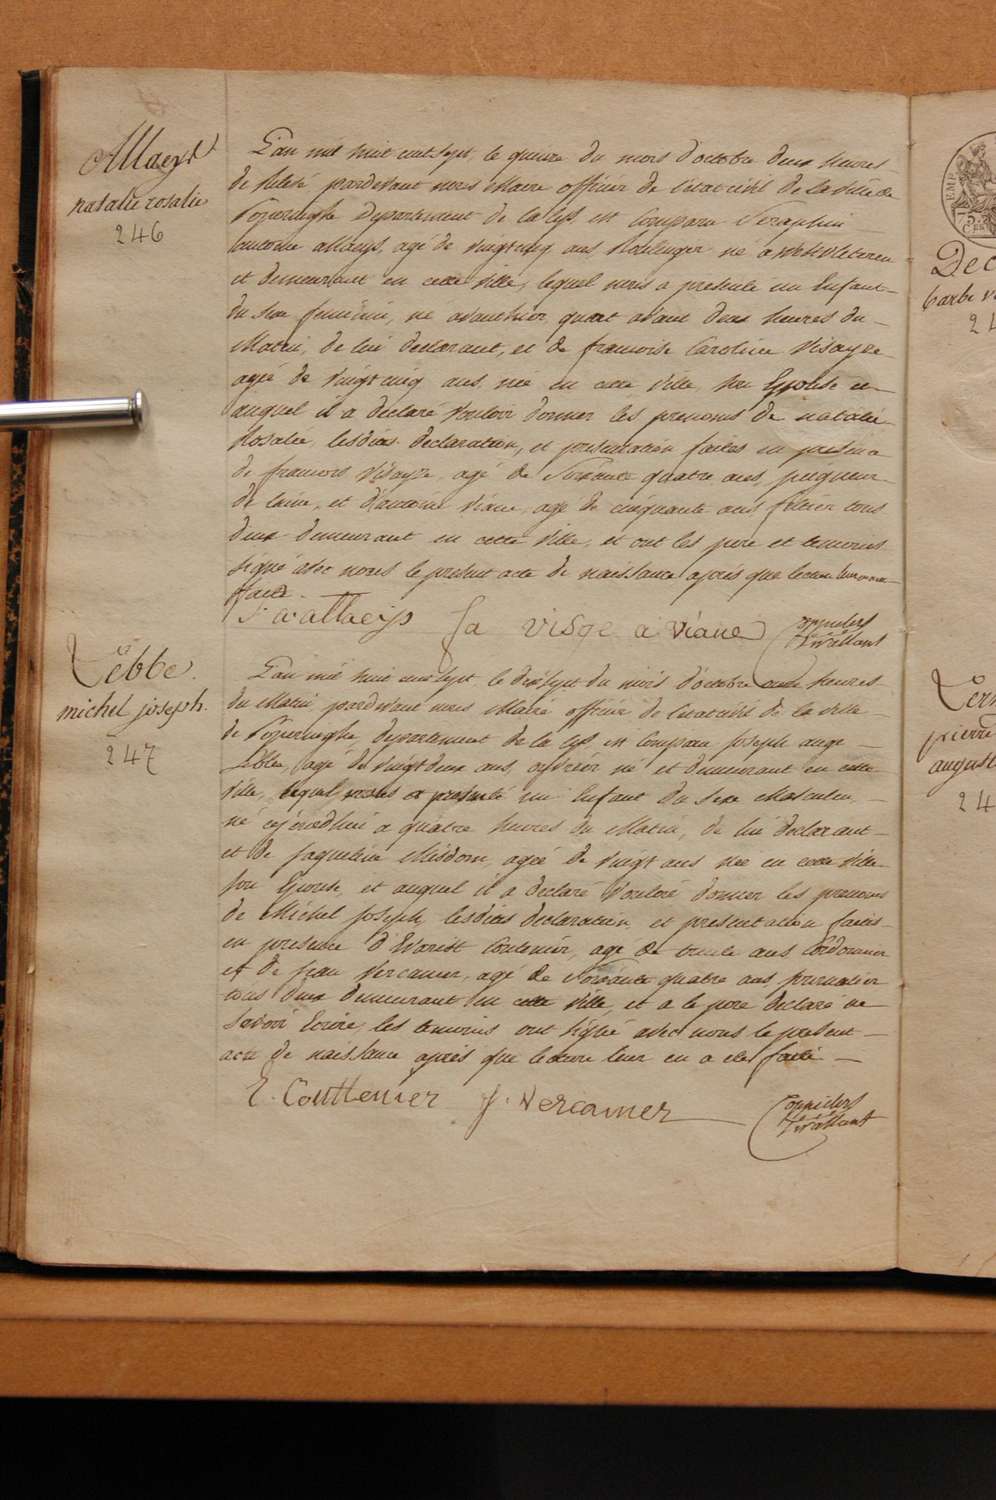 Allaeys
natalie rosalie
246
L'an mil huit cent sept, le quinze du mois d'octobre deux heures
de relevé pardevant nous Maire officier de l'état civil de la ville de
Poperinghe Departement de la Lys est comparu Seraphin
allaeys, agé de vingt cinq ans Boulenger né a westvleteren
et demeurant en cette ville, lequel nous a presenté un Enfant
du sexe feminin, né avanthier quart avant deux heures du
Matin, de lui declarant, et de francoise Caroline Visage
agée de vingt cinq ans, née en cette ville, son Epouse et
auquel il a declaré vouloir donner les prenoms de natalie
Rosalie, lesdites declaration, et presentation faites en presence
de francois Visage, agé de Soixante quatre ans, peigneur
de laine, et d'antoine Viane, agé de cinquante ans fritier tous
deux demeurant en cette ville, et ont les pere et temoins
signé avec nous le present acte de naissance après que lecture leur en a
faite.
fa visge a viane
Lebbe.
michel joseph.
247
L'an mil huit cent sept le dixsept du mois d'octobre onze heures
du Matin pardevant nous Maire officier de l'état civil de la ville
de Poperinghe departement de la Lys est comparu Joseph ange
Lebbe, agé de vingt deux ans, né et demeurant en cette
ville, lequel nous a presenté un Enfant du sexe Masculin,
né cejourd'hui a quatre heures du Matin, de lui declarant
et de Jaqueline Misdom, agée de vingt ans née en cette ville
son Epouse, et auquel il a declaré vouloir donner les prenoms
de Michel Joseph lesdites declaration et presentation faites
en presence d'Evarist Couttenier, agé de trente ans Cordonnier
et de jean Vercamer, agé de Soixante quatre ans, journalier
tous deux demeurant en cette ville, et a le pere declaré ne
savoir Ecrire, les temoins ont signé avec nous le present
acte de naissance après que lecture leur en a eté faite
E. Couttenier j. vercamer
Dec
barbe
24
pierre
august
24
EMP
75.